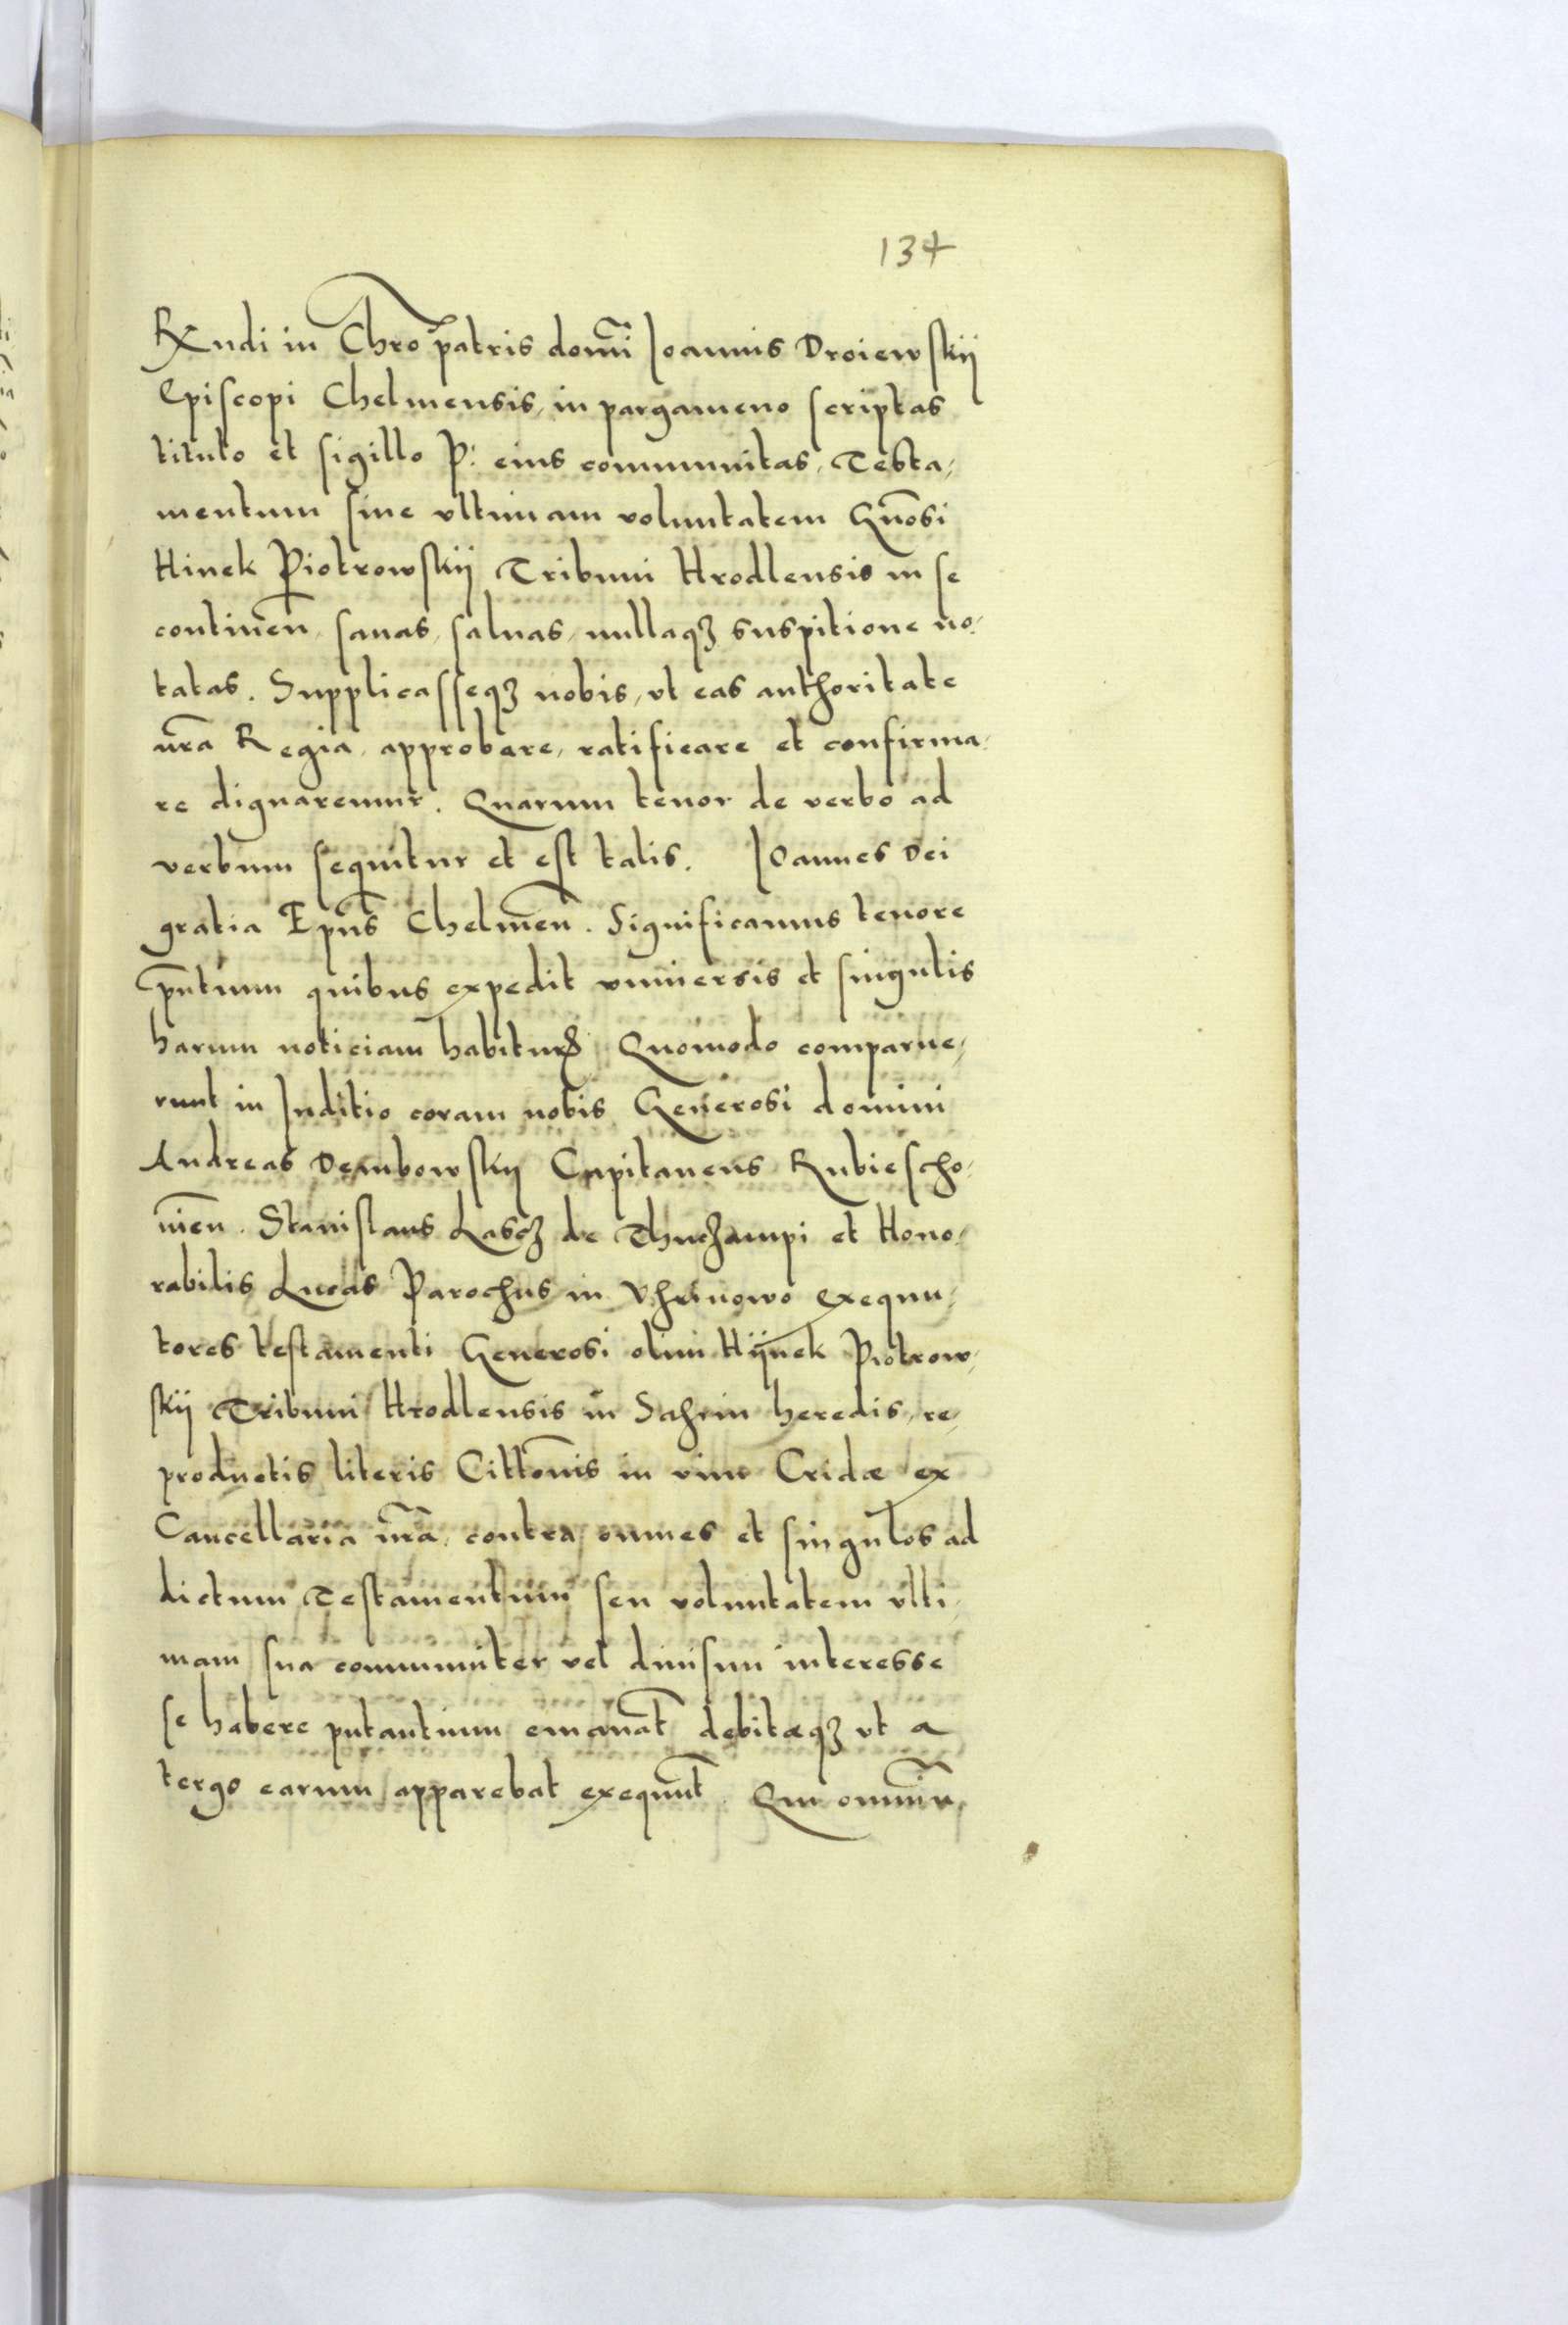 134
Rṽndi in Chro patris domĩ Ioannis Droiewskij
Episcopi Chelmensis, in pargameno scriptas
titulo et sigillo P: eius communitas, Testa,
mentum siue vltimam voluntatem Gnõsi
Hinek Piotrowskij Tribuni Hrodlensis in se
continẽn, sanas, saluas, nullaqꝫ suspitione no,
tatas. Supplicasseqꝫ nobis, vt eas authoritate
nr̃a Regia, approbare, ratificare et confirma,
re dignaremur. Quarum tenor de verbo ad
verbum sequitur et est talis. Ioannes Dei
gratia Epũs Chelmẽn. Significamus tenore
pñtium quibus expedit vniuersis et singulis
harum noticiam habiturꝭ. Quomodo comparue,
runt in Iuditio coram nobis Generosi domini
Andreas Dembowskij Capitaneus Rubiescho,
uiẽn. Stanislaus Lascꝫ de Thuczampi et Hono,
rabilis Lucas Parochus in Vhrinowo exequu,
tores testamenti Generosi olim Hijnek Piotrow,
skij Tribuni Hrodlensis in Sahrin heredis, re,
productis literis Cittõnis in vim Cridæ ex
Cancellaria nr̃a, contra omnes et singulos ad
dictum Testamentum seu voluntatem vlti,
mam sua communiter vel diuisim interesse
se habere putantium emanat̃ debitæqꝫ vt a
tergo earum apparebat exequut̃. Qui omniũ,